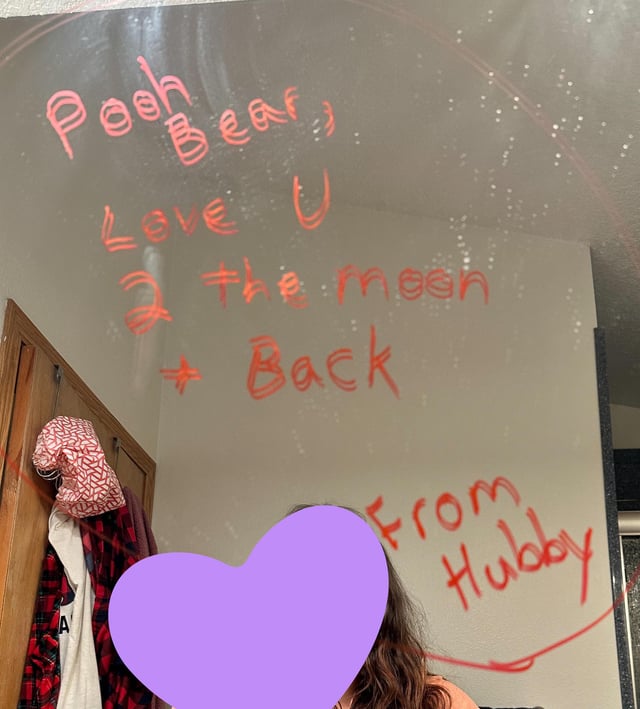 Pooh
Bear,
Love U
2 the moon
+ Back
From
Hubby
A